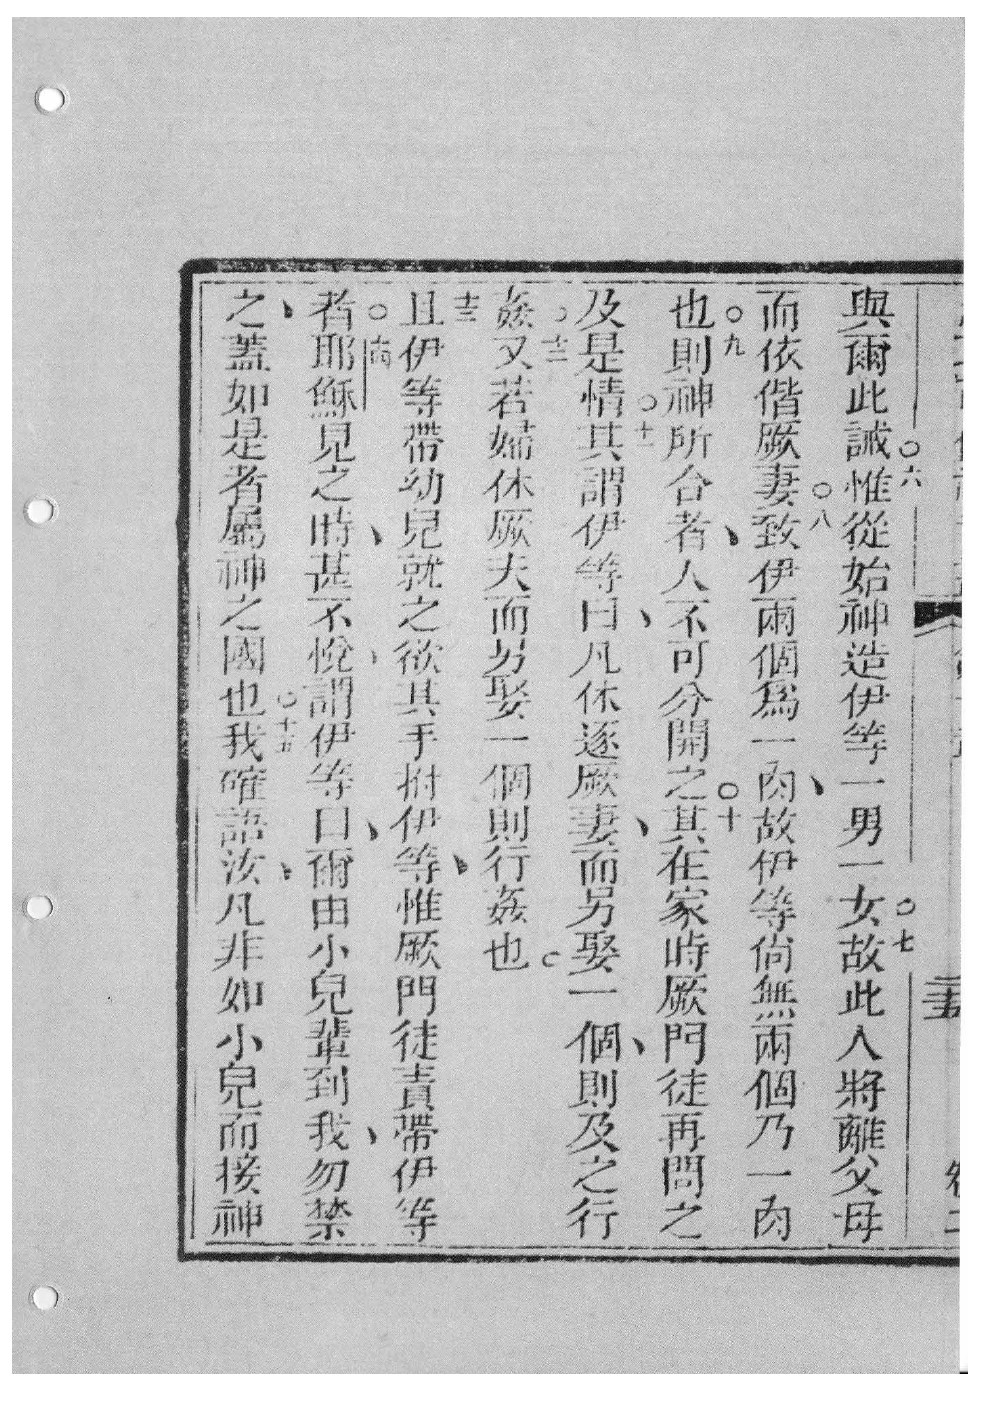 與爾此誡○六惟從始神造伊等一男一女○七故此人將離父母
而依偕厥妻○八致伊兩個為一肉故伊等尚無兩個乃一肉
也○九則神所合者人不可分開之○十其在家時厥門徒再問之
及是情○十一其謂伊等曰凡休逐厥妻而另娶一個則及之行
姦○十二又若婦休厥夫而另娶一個則行姦也
十三且伊等帶幼兒就之欲其手拊伊等惟厥門徒責帶伊等
者○十四耶穌見之時甚不悅謂伊等曰爾由小兒輩到我勿禁
之蓋如是者屬神之國也○十五我確語汝凡非如小兒而接神